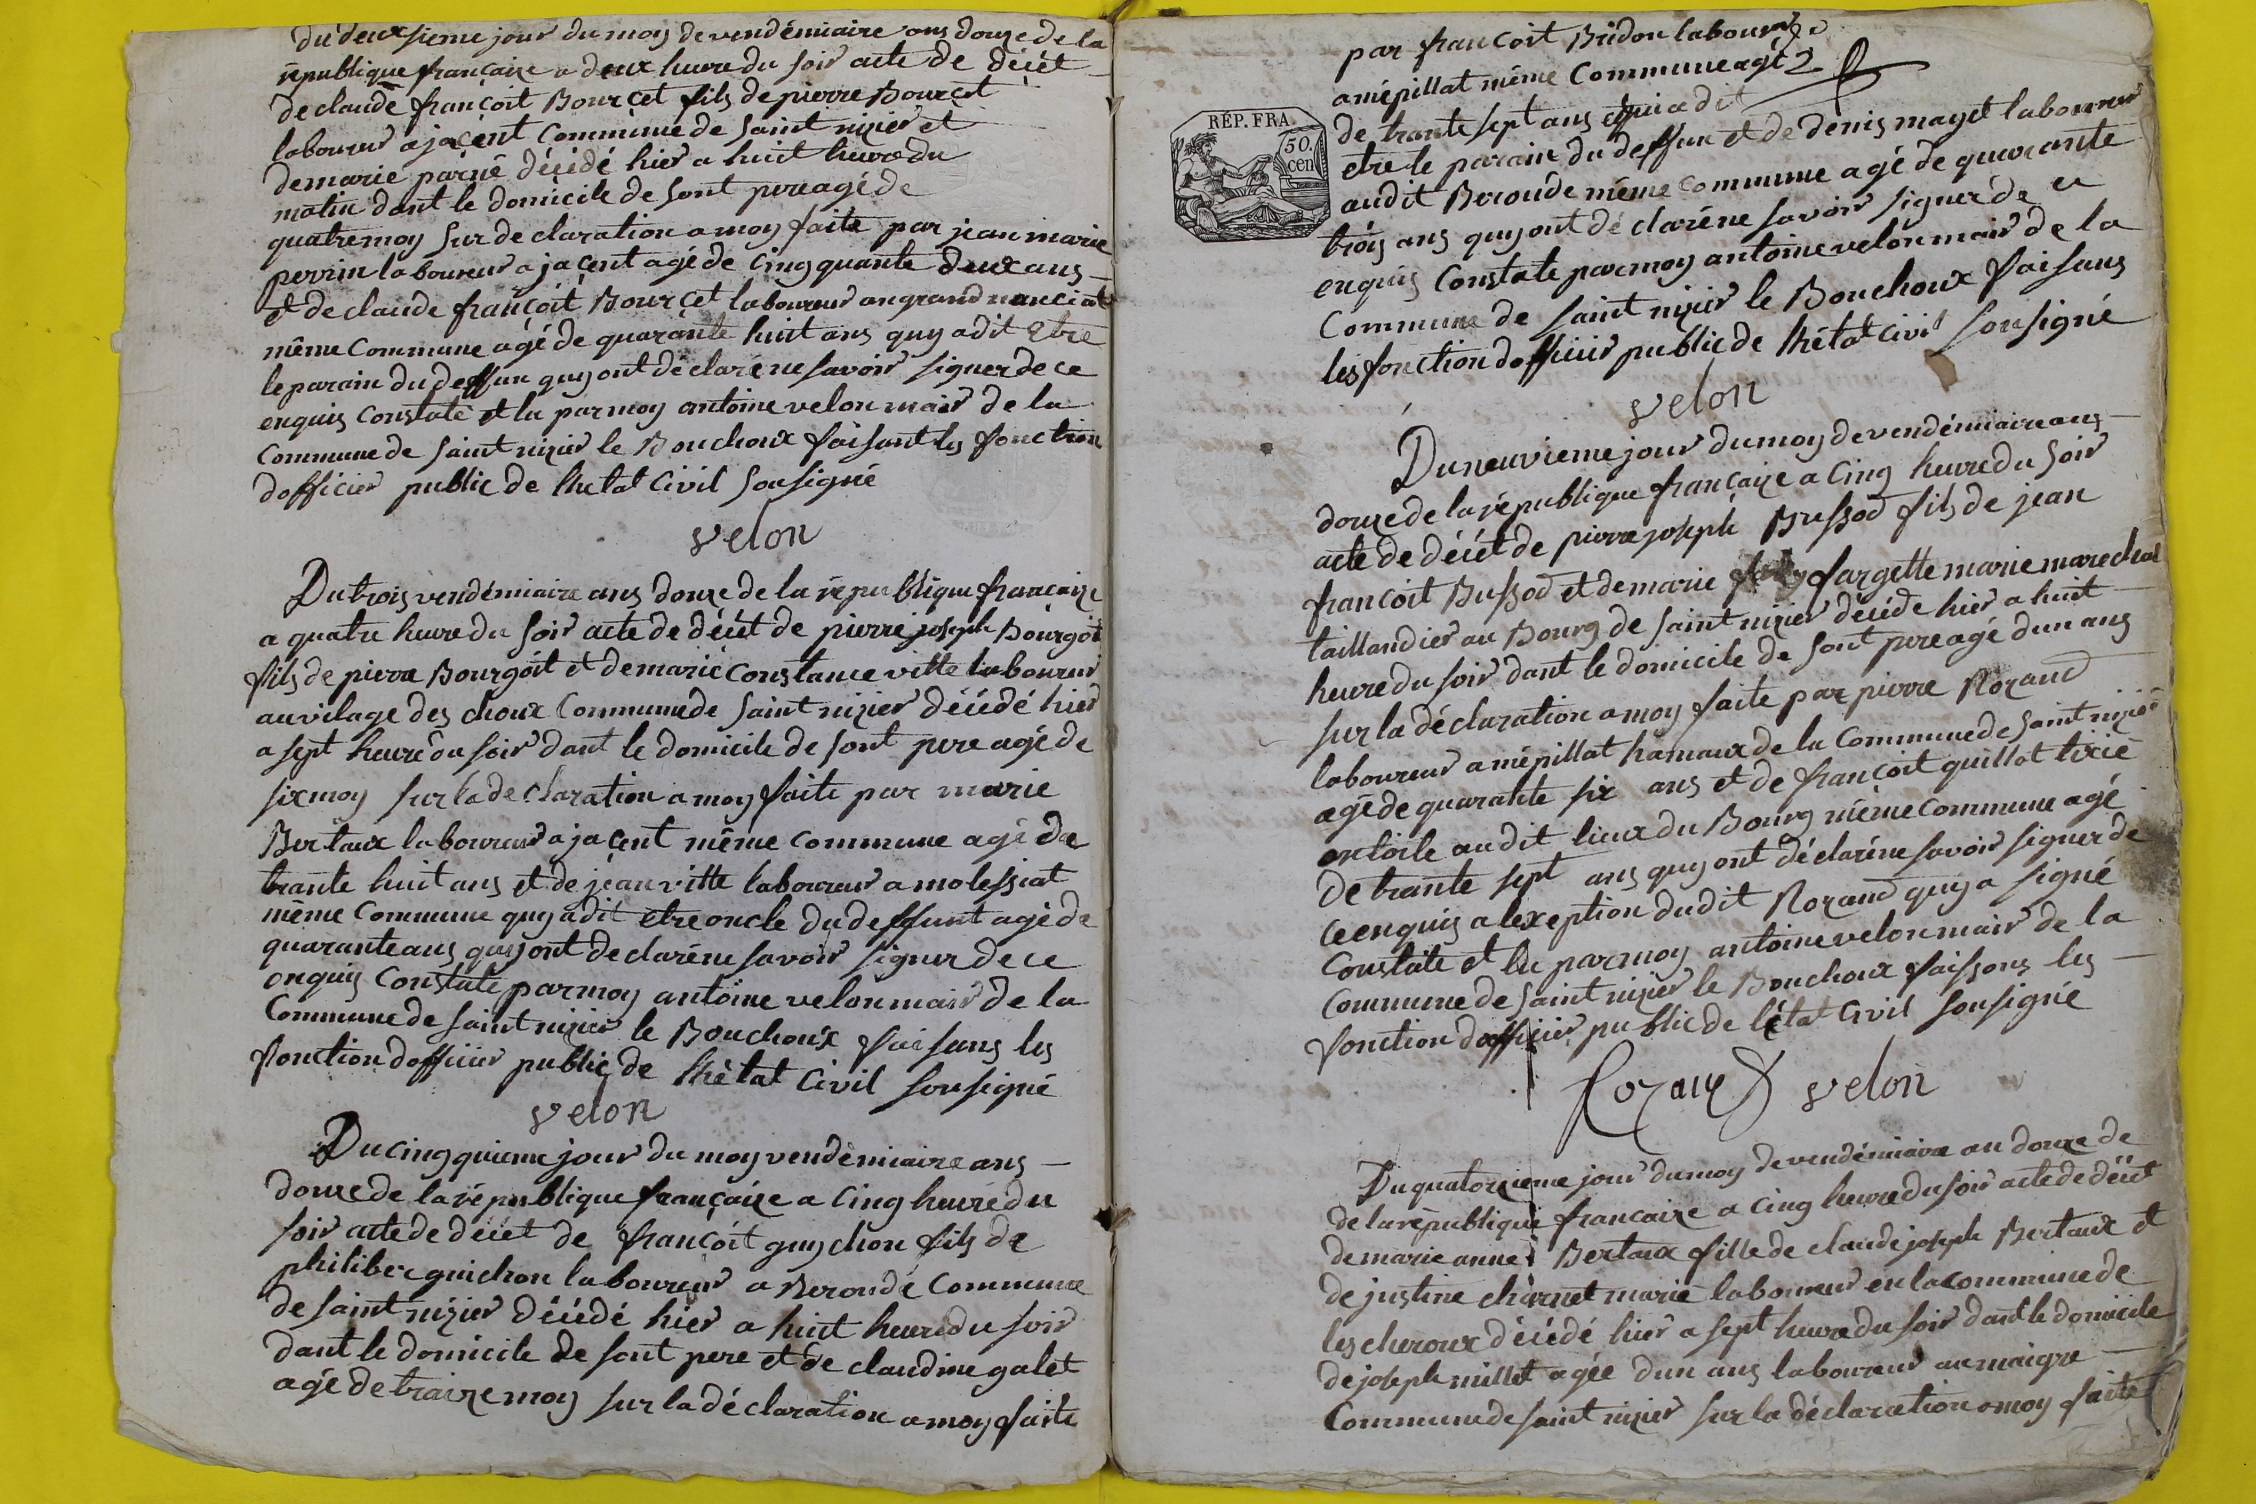 du deuxsieme jour du moy de vendémiaire ans douze de la
republique françaize a deux heure du soir acte de décét
de claude françoit Bourcet fils de pierre Bourcet
laboureur a jacent Commune de saint nizier et
de marie parne décédé hier a huit heure du
matin dant le domicile de sont pere agé de
quatre moy sur declaration a moy faite par jean marie
perrin laboureur a jacent agé de Cinqquante deux ans
et de claude françoit Bourcet laboureur au grand nanciat
même Commune agé de quarante huit ans quy a dit etre
le parain du deffun quy ont déclaré ne savoir signer de ce
enquis Constate et lu par moy antoine velon mair de la
Commune de saint nizier le Bouchoux faisant les fonction
dofficier public de lhetat Civil sousigné
velon
Du trois vendémiaire ans douze de la republique françaize
a quatre heure du soir acte de décét de pierre joseph Bourgoit
fils de pierre Bourgoit et de marie Constance vitte laboureur
au vilage des choux Commune de saint nizier décédé hier
a sept heure du soir dant le domicile de sont pere agé de
six moy sur la declaration a moy faite par marie
Bertaux laboureur a jacent même commune agé de
trante huit ans et de jean vitte laboureur a molessiat
même Commune quy a dit etre oncle du deffunt agé de
quarante ans quy ont declaré ne savoir signer de ce
enquis Constate par moy antoine velon mair de la
Commune de saint nizier le Bouchoux faisans les
fonction dofficier public de lhétat Civil sousigné
velon
Du Cinqquieme jour du moy vendémiaire ans
douze de la république françaize a Cinq heure du
soir acte de décét de françoit guychon fils de
philiber guichon laboureur a Beroude Commune
de saint nizier décédé hier a huit heure du soir
dant le domicile de sont pere et de claudine galet
agé de traize moy sur la déclaration a moy faite
par françoit Bridon laboureur
a mépillat même Commune agé
RÉP. FRA.
50.
cen
de trante sept ans quia dit
etre le parain du deffun et de denis mayet laboureur
audit Beroude même commune agé de quarante
trois ans quy ont déclaré ne savoir signer de ce
enquis Constate par moy antoine velon mair de la
Commune de saint nizier le Bouchoux faisans
les fonction dofficier public de lhétat Civil sousigné
velon
Du neuvieme jour du moy de vendémiaire ans
douze de la république françaize a Cinq heure du soir
acte de décét de pierre joseph Bussod fils de jean
françoit Bussod et de marie fargette marie marechal
taillandier au Bourg de saint nizier décédé hier a huit
heure du soir dant le domicile de sont pere agé dun ans
sur la déclaration a moy faite par pierre Rozand
laboureur a mépillat hamaux de la Commune de saint nizier
agé de quarante six ans et de françoit guillot tixié
entoile audit lieux du Bourg même Commune agé
de trante sept ans quy ont déclaré ne savoir signer de
ce enquis a lexeption dudit Rozand quy a signé
Constate et lu par moy antoine velon mair de la
Commune de saint nizier le Bouchoux faissons les
fonction dofficier public de létat Civil sousigné
Rozand velon
Du quatorzieme jour du moy de vendémiaire an douze de
de la république francaize a Cinq heure du soir acte de décét
de marie anne Bertaux fille de claude joseph Bertaux et
de justine charnet marié laboureur en la commune de
les cheroux décédé hier a sept heure du soir dant le domicile
de joseph millet agée dun ans laboureur au maigre
Commune de saint nizier sur la déclaration a moy faite